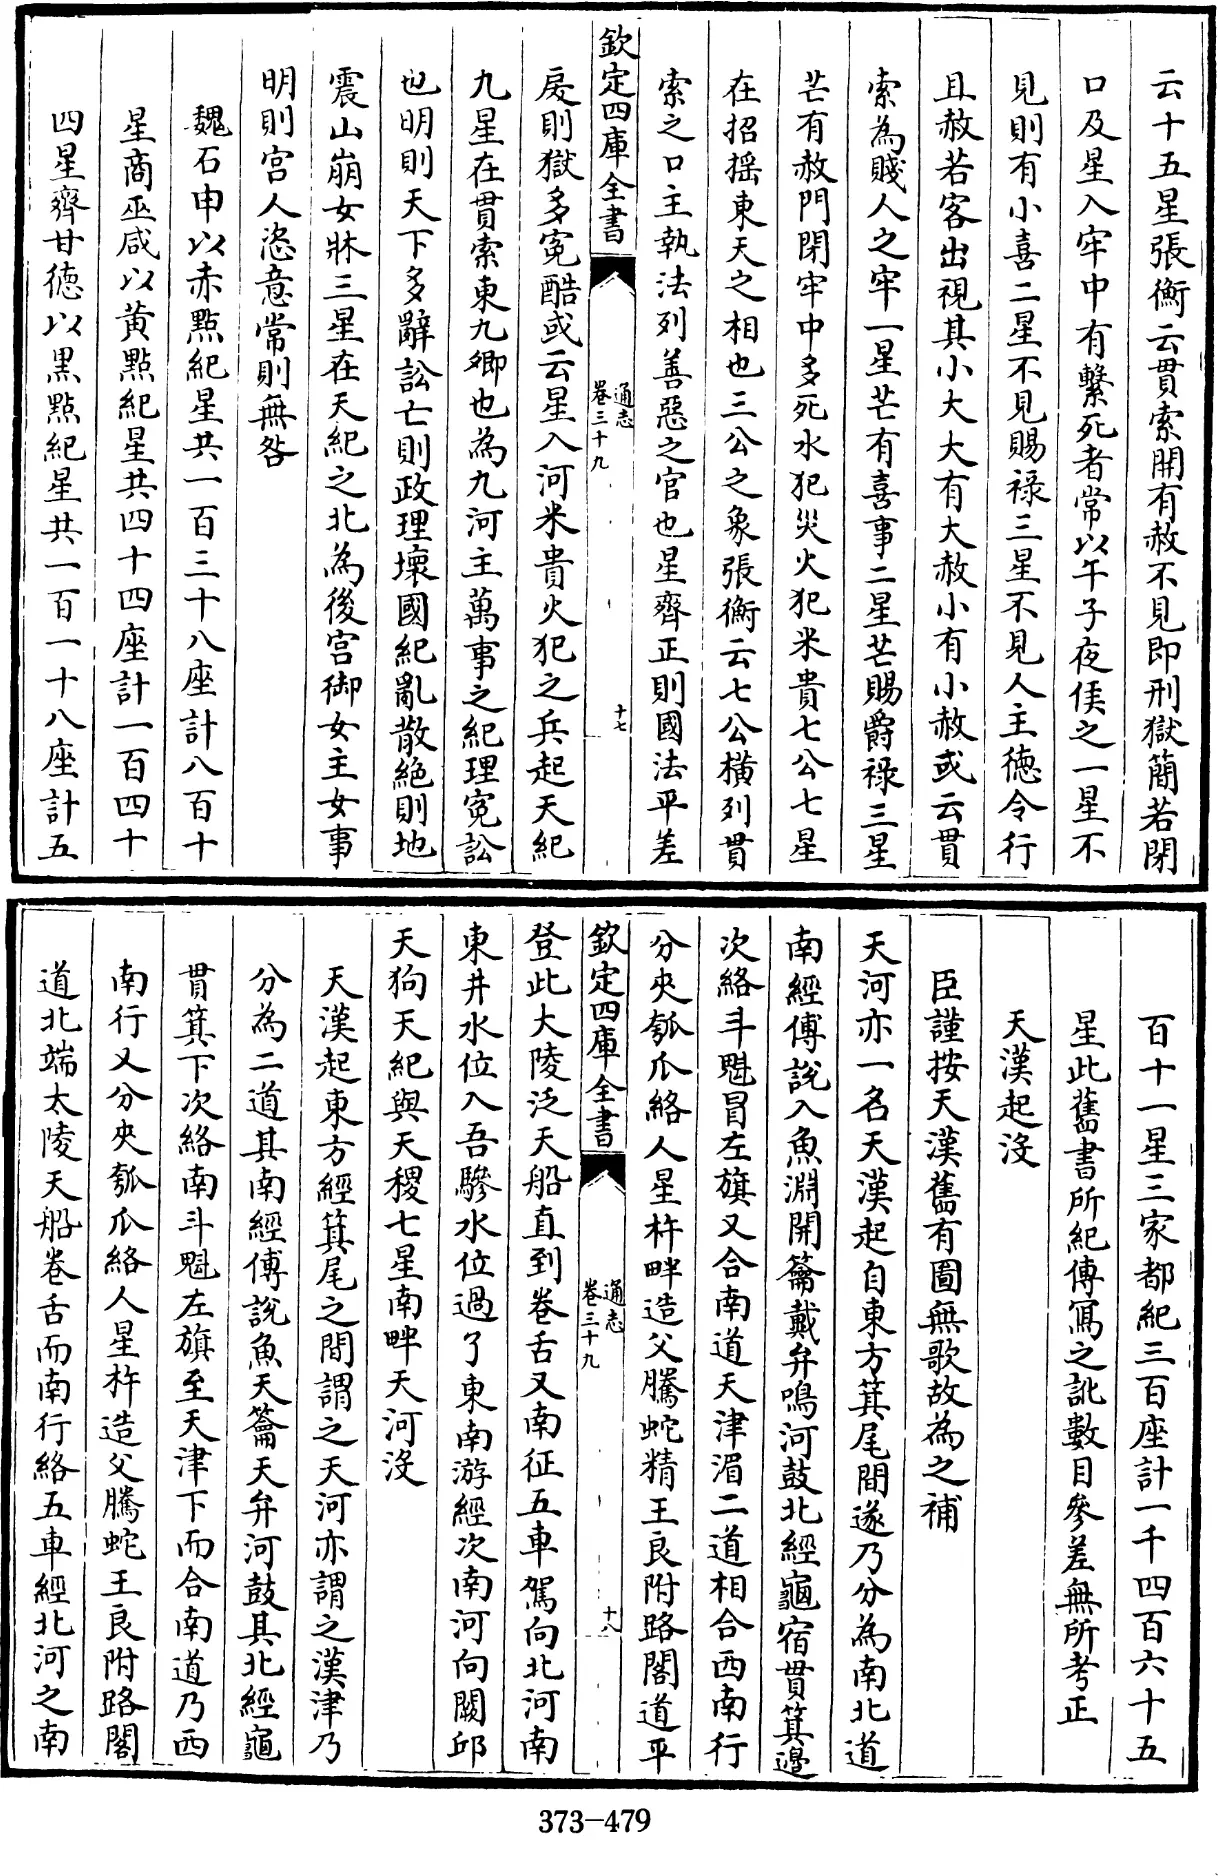 云十五星張衡云貫索開有赦不見即刑獄簡若閉
口及星入牢中有繫死者常以午子夜候之一星不
見則有小喜二星不見賜祿三星不見人主徳令行
且赦若客出視其小大大有大赦小有小赦或云貫
索為賤人之牢一星芒有喜事二星芒賜爵祿三星
芒有赦門閉牢中多死水犯災火犯米貴七公七星
在招搖東天之相也三公之象張衡云七公橫列貫
索之口主執法列善惡之官也星齊正則國法平差
欽定四庫全書
通志
卷三十九
十七
戾則獄多寃酷或云星入河米貴火犯之兵起天紀
九星在貫索東九卿也為九河主萬事之紀理寃訟
也明則天下多辭訟亡則政理壞國紀亂散絶則地
震山崩女牀三星在天紀之北為後宮御女主女事
明則宮人恣意常則無咎
魏石申以赤點紀星共一百三十八座計八百十
星商巫咸以黃點紀星共四十四座計一百四十
四星齊甘徳以黒點紀星共一百一十八座計五
百十一星三家都紀三百座計一千四百六十五
星此舊書所紀傳寫之訛數目參差無所考正
天漢起沒
臣謹按天漢舊有圖無歌故為之補
天河亦一名天漢起自東方箕尾間遂乃分為南北道
南經傅說入魚淵開籥戴弁鳴河鼓北經龜宿貫箕邉
次絡斗魁冒左旗又合南道天津湄二道相合西南行
分夾匏瓜絡人星杵畔造父騰蛇精王良附路閣道平
欽定四庫全書
通志
卷三十九
十八
登此大陵泛天船直到卷舌又南征五車駕向北河南
東井水位入吾驂水位過了東南游經次南河向闕邱
天狗天紀與天稷七星南畔天河沒
天漢起東方經箕尾之間謂之天河亦謂之漢津乃
分為二道其南經傅說魚天籥天弁河鼓其北經龜
貫箕下次絡南斗魁左旗至天津下而合南道乃西
南行又分夾瓠瓜絡人星杵造父騰蛇王良附路閣
道北端太陵天船卷舌而南行絡五車經北河之南
373-479